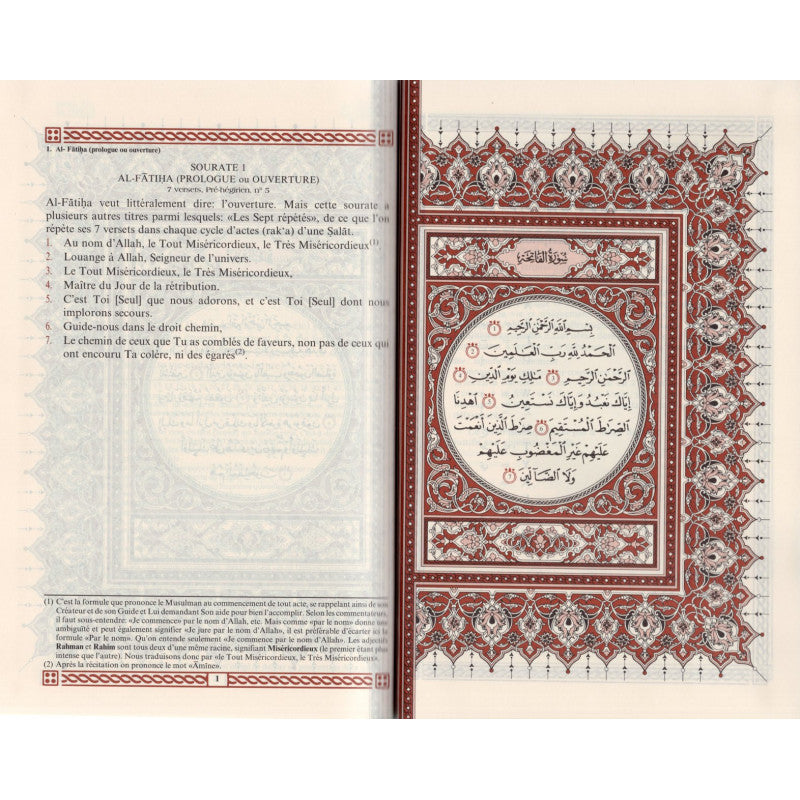 1. Al- Fātiḥa (prologue ou ouverture)
SOURATE 1
AL-FĀTIḤA (PROLOGUE ou OUVERTURE)
7 versets, Pré-hégirien, n° 5
Al-Fātiḥa veut littéralement dire: l'ouverture. Mais cette sourate a
plusieurs autres titres parmi lesquels: «Les Sept répétés», de ce que l'on
répète ses 7 versets dans chaque cycle d'actes (rak'a) d'une Ṣalāt.
1. Au nom d'Allah, le Tout Miséricordieux, le Très Miséricordieux(1).
2. Louange à Allah, Seigneur de l'univers.
3. Le Tout Miséricordieux, le Très Miséricordieux,
4. Maître du Jour de la rétribution.
5. C'est Toi [Seul] que nous adorons, et c'est Toi [Seul] dont nous
implorons secours.
6. Guide-nous dans le droit chemin,
7. Le chemin de ceux que Tu as comblés de faveurs, non pas de ceux qui
ont encouru Ta colère, ni des égarés(2).
(1) C'est la formule que prononce le Musulman au commencement de tout acte, se rappelant ainsi de son
Créateur et de son Guide et Lui demandant Son aide pour bien l'accomplir. Selon les commentateurs,
il faut sous-entendre: «Je commence» par le nom d'Allah, etc. Mais comme «par le nom» donne une
ambiguïté et peut également signifier «Je jure par le nom d'Allah», il est préférable d'écarter ici la
formule «Par le nom». Qu'on entende seulement «Je commence par le nom d'Allah». Les adjectifs
Rahman et Rahim sont tous deux d'une même racine, signifiant Miséricordieux (le premier étant plus
intense que l'autre). Nous traduisons donc par «le Tout Miséricordieux, le Très Miséricordieux».
(2) Après la récitation on prononce le mot «Āmīne».
1
سُورَةُ الفَاتِحَةِ
بِسْمِ اللَّهِ الرَّحْمَٰنِ الرَّحِيمِ ١
الْحَمْدُ لِلَّهِ رَبِّ الْعَٰلَمِينَ ٢
الرَّحْمَٰنِ الرَّحِيمِ ٣ مَٰلِكِ يَوْمِ الدِّينِ ٤
إِيَّاكَ نَعْبُدُ وَإِيَّاكَ نَسْتَعِينُ ٥ اهْدِنَا
الصِّرَٰطَ الْمُسْتَقِيمَ ٦ صِرَٰطَ الَّذِينَ أَنْعَمْتَ
عَلَيْهِمْ غَيْرِ الْمَغْضُوبِ عَلَيْهِمْ
وَلَا الضَّآلِّينَ ٧